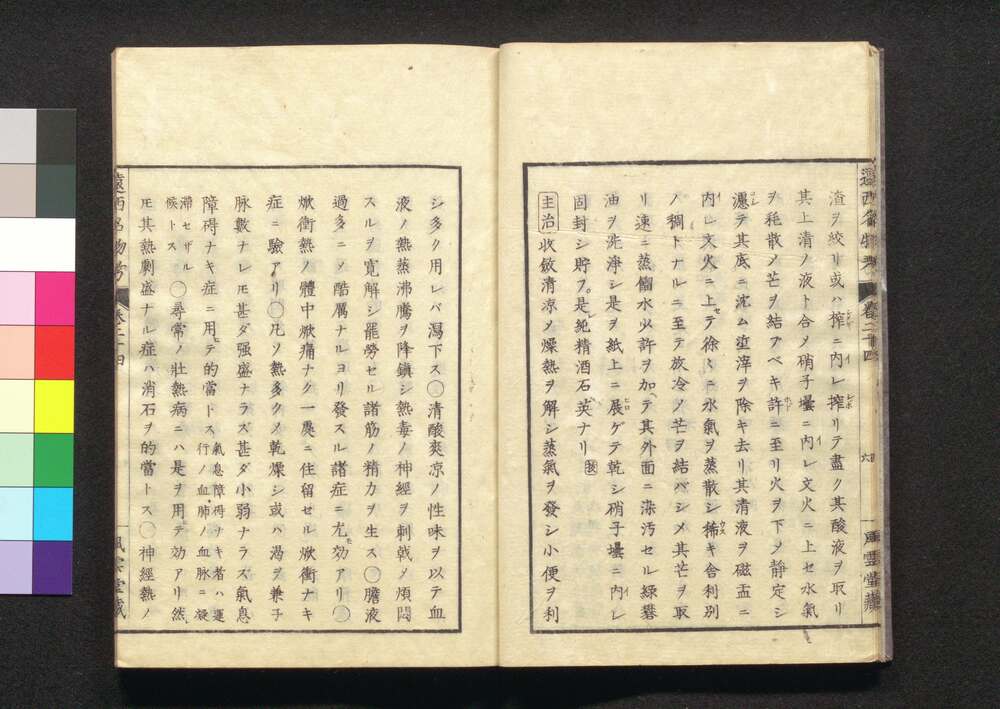 渣ヲ絞リ或ハ搾ニ内レ搾リテ盡ク其酸液ヲ取リ
其上清ノ液ト合メ硝子壜ニ内レ文火ニ上セ水氣
ヲ耗散メ芒ヲ結ブベキ許ニ至リ火ヲ下メ靜定シ
濾テ其底ニ沈ム滓ヲ除キ去リ其清液ヲ磁盂ニ
内レ文火ニ上セテ徐々ニ水氣ヲ蒸散シ稀キ舎利別
ノ稠トナルニ至テ放冷ノ芒ヲ結バシメ其芒ヲ取
リ速ニ蒸餾水少許ヲ加ヘテ其外面ニ染汚セル緑礬
油ヲ洗淨シ是ヲ紙上ニ展ゲテ乾シ硝子壜ニ内レ
固封シ貯フ是レ純精酒石英ナリ
主治 收斂清凉ノ燥熱ヲ解シ蒸氣ヲ發シ小便ヲ利
遠西名物考 卷二十四 風雲堂藏
シ多ク用レバ瀉下ス○清酸爽凉ノ性味ヲ以テ血
液ノ熱蒸沸騰ヲ降鎮シ熱毒ノ神經ヲ刺戟メ煩悶
スルヲ寛解シ罷勞セル諸筋ノ精力ヲ生ス○膽液
過多ニメ酷厲ナルヨリ發スル諸症ニ尤モ効アリ○
焮衝熱ノ體中焮痛ナク一處ニ住留セル焮衝ナキ
症ニ驗アリ○凡ソ熱多クメ乾燥シ或ハ渇ヲ兼子
脉數ナレ𪜈甚ダ强盛ナラズ甚ダ小弱ナラス氣息
障碍ナキ症ニ用ヒテ的當トス 氣息障碍ナキ者ハ運行ノ血肺ノ血脉ニ凝
滯セザル候トス ○尋常ノ壯熱病ニハ是ヲ用テ効アリ然
𪜈其熱劇盛ナル症ハ消石ヲ的當トス○神經熱ノ
遠西名物考 卷二十四 風雲堂藏